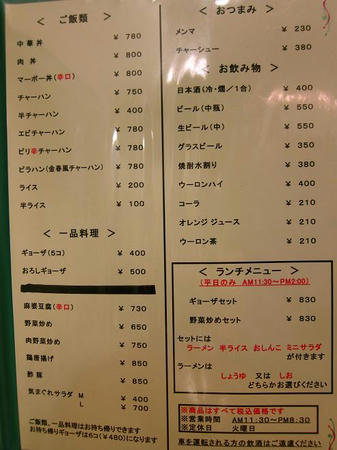 ＜ ご飯類 ＞
中華丼 ￥ 780
肉 丼 ￥ 800
マーボー丼(辛口) ￥ 800
チャーハン ￥ 750
半チャーハン ￥ 400
エビチャーハン ￥ 780
ピリ辛チャーハン ￥ 780
ピラハン(金春風チャーハン) ￥ 780
ライス ￥ 200
半ライス ￥ 100
＜ 一品料理 ＞
ギョーザ(5コ) ￥ 400
おろしギョーザ ￥ 500
麻婆豆腐(辛口) ￥ 730
野菜炒め ￥ 650
肉野菜炒め ￥ 750
鶏唐揚げ ￥ 850
酢豚 ￥ 850
気まぐれサラダ M ￥ 400
L ￥ 700
ご飯類、一品料理はお持ち帰りできます
お持ち帰りギョーザは6コ(￥480)になります
＜ おつまみ ＞
メンマ ￥ 230
チャーシュー ￥ 380
＜ お飲み物 ＞
日本酒(冷・燗/1合) ￥ 400
ビール(中瓶) ￥ 550
生ビール(中) ￥ 550
グラスビール ￥ 350
焼酎水割り ￥ 380
ウーロンハイ ￥ 400
コーラ ￥ 210
オレンジ ジュース ￥ 210
ウーロン茶 ￥ 210
＜ ランチメニュー ＞
(平日のみ AM11:30～PM2:00)
ギョーザセット ￥ 830
野菜炒めセット ￥ 830
セットには
ラーメン 半ライス おしんこ ミニサラダ
が付きます
ラーメンは
しょうゆ 又は しお
どちらかお選びください
※商品はすべて税込価格です
※営業時間 AM11:30～PM8:30
※定休日 火曜日
車を運転される方の飲酒はご遠慮ください